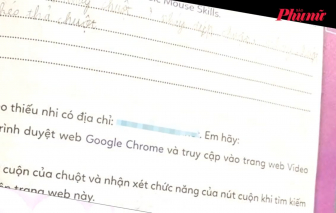 Phụ nữ
Mouse Skills.
thả chuột
o thiếu nhi có địa chỉ: . Em hãy:
rình duyệt web Google Chrome và truy cập vào trang web Video
cuộn của chuột và nhận xét chức năng của nút cuộn khi tìm kiếm
trang web này.